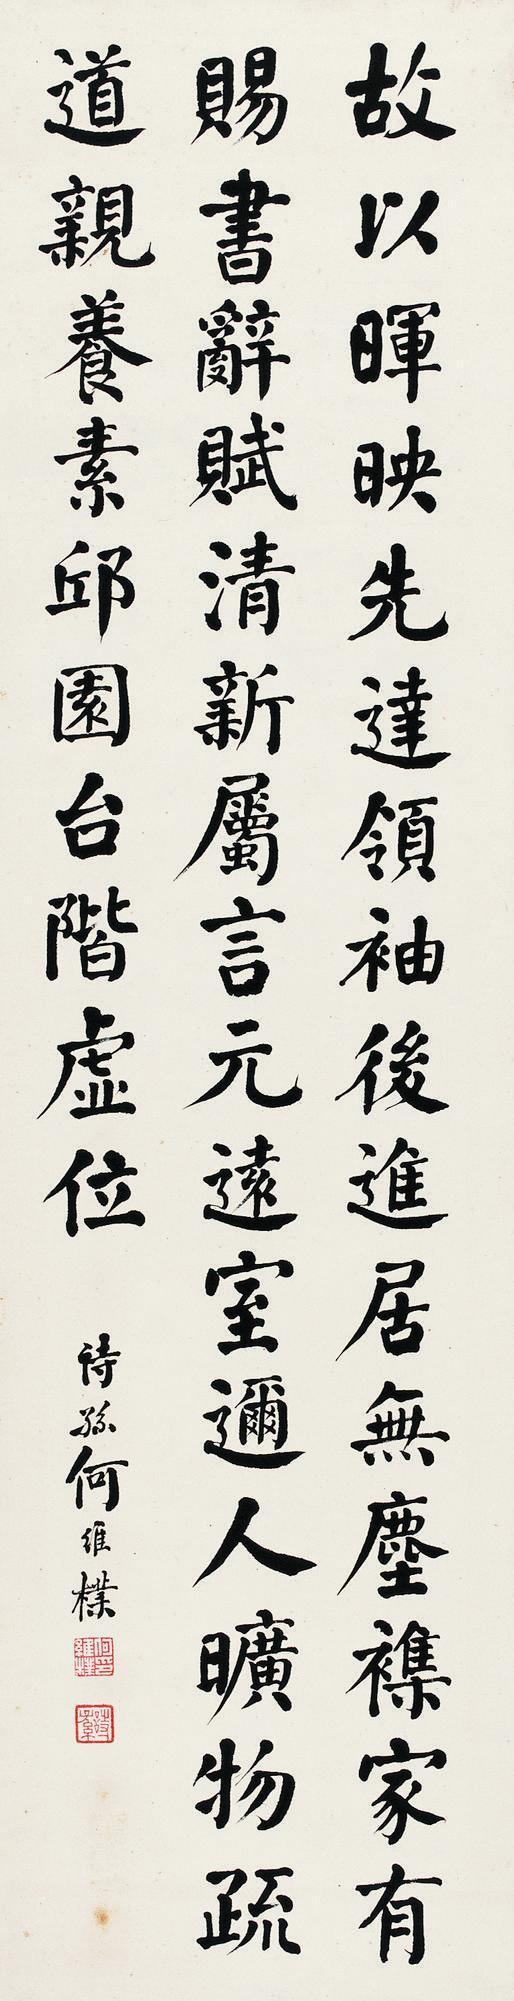 故以暉映先達領袖後進居無塵襍家有
賜書辭賦清新屬言元遠室邇人曠物疏
道親養素邱園台階虛位
詩孫何維樸
何維樸印
詩孫